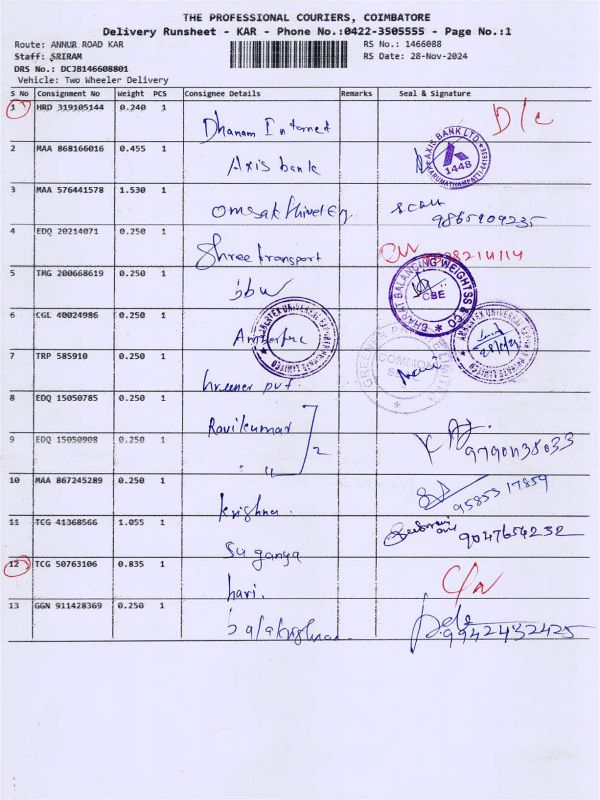 THE PROFESSIONAL COURIERS, COIMBATORE
Delivery Runsheet - KAR - Phone No.:0422-3505555 - Page No.:1
Route: ANNUR ROAD KAR RS No.: 1466088
Staff: SRIRAM RS Date: 28-Nov-2024
DRS No.: DCJB146608801
Vehicle: Two Wheeler Delivery
S No Consignment No Weight PCS Consignee Details Remarks Seal & Signature
1 HRD 319105144 0.240 1 Dhanam Internet D/c
2 MAA 868166016 0.455 1 Axis bank AXIS BANK LTD. 1448
3 MAA 576441578 1.530 1 9865909235
4 EDQ 20214071 0.250 1 Shree transport
5 TMG 200668619 0.250 1 bbw BHARAT BALANCING WEIGHTSS & CO CBE
6 CGL 40024986 0.250 1
7 TRP 585910 0.250 1 Greener pvt COMMON
8 EDQ 15050785 0.250 1 Ravikumar
9 EDQ 15050908 0.250 1 " 2 9790038033
10 MAA 867245289 0.250 1 krishna. 9585317859
11 TCG 41368566 1.055 1 Suganya 9047654232
12 TCG 50763106 0.835 1 hari.
13 GGN 911428369 0.250 1 balakrishnan 9942432425